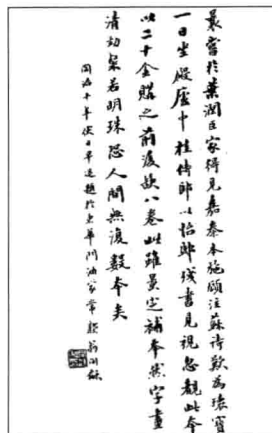 曩嘗於葉潤臣家得見嘉泰本施顧注蘇詩歎為瓌寶
一日坐殿廬中桂侍郎以怡邸殘書見視忽覩此本
以二十金購之前後缺八卷此雖景定補本然字畫
清勁粲若明珠恐人間無復數本矣
同治十年伏日早退題於東華門油家常熟翁同龢